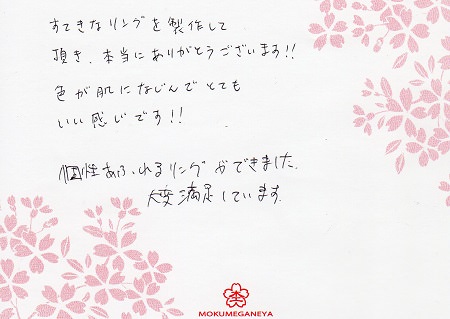 すてきなリングを製作して
頂き、本当にありがとうございます!!
色が肌になじんでとても
いい感じです!!
個性あふれるリングができました。
大変満足しています。
MOKUMEGANEYA